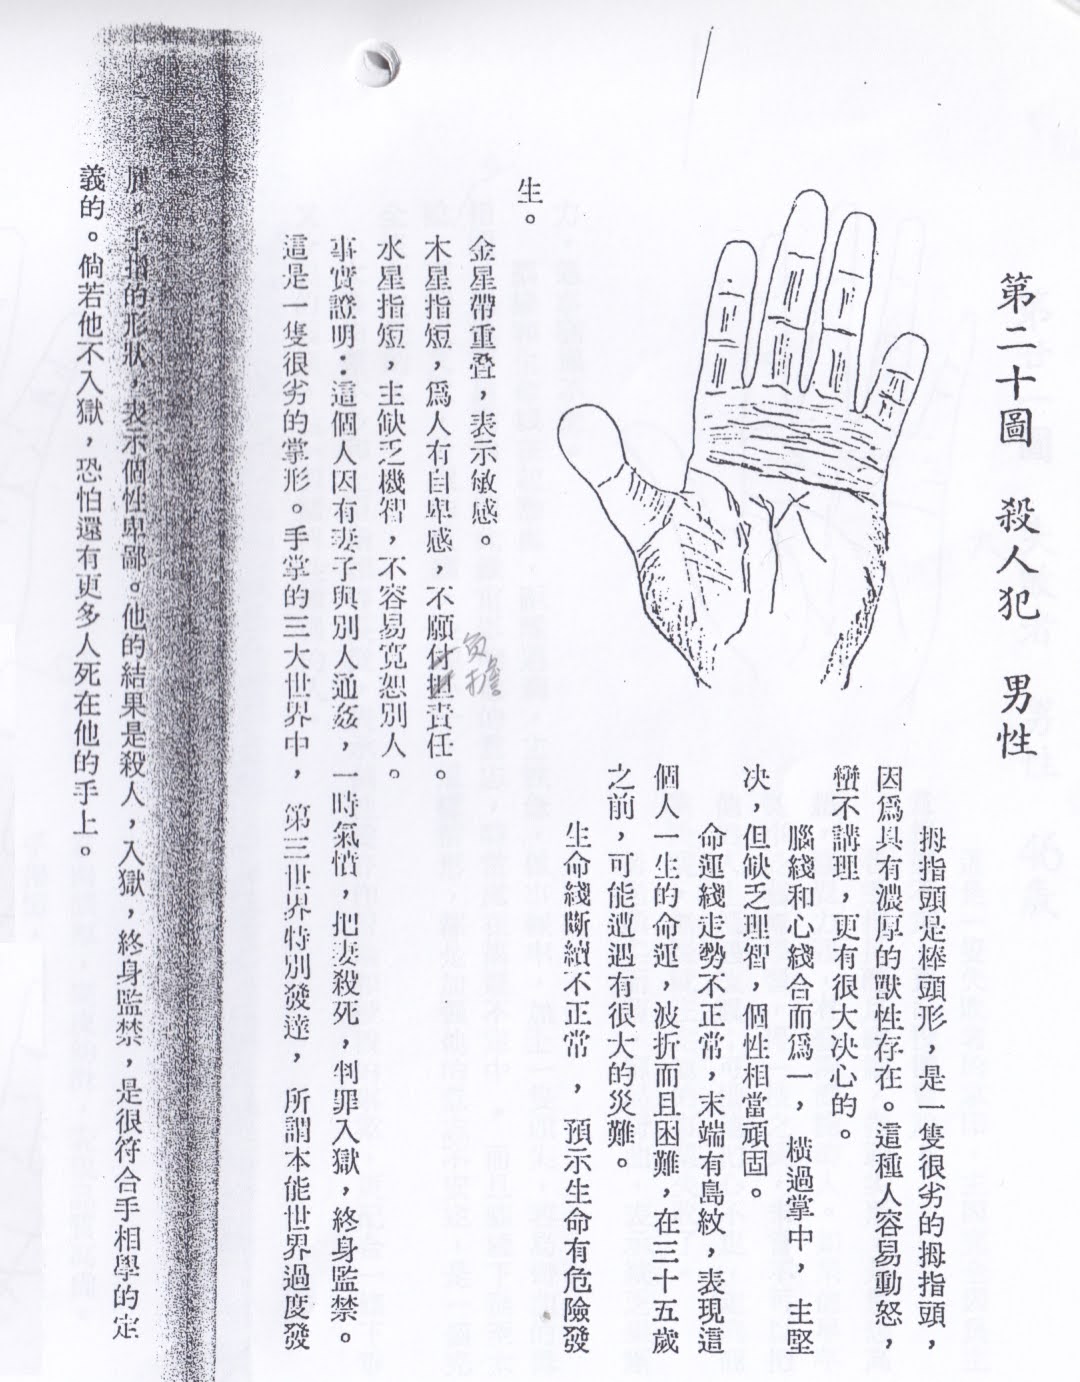 第二十圖　殺人犯　男性
拇指頭是棒頭形，是一隻很劣的拇指頭，
因爲具有濃厚的獸性存在。這種人容易動怒，
蠻不講理，更有很大決心的。
腦綫和心綫合而爲一，橫過掌中，主堅
決，但缺乏理智，個性相當頑固。
命運綫走勢不正常，末端有島紋，表現這
個人一生的命運，波折而且困難，在三十五歲
之前，可能遭遇有很大的災難。
生命綫斷續不正常，預示生命有危險發
生。
金星帶重叠，表示敏感。
木星指短，爲人有自卑感，不願付担責任。
負擔
水星指短，主缺乏機智，不容易寬恕別人。
事實證明：這個人因有妻子與別人通姦，一時氣憤，把妻殺死，判罪入獄，終身監禁。
這是一隻很劣的掌形。手掌的三大世界中，第三世界特別發達，所謂本能世界過度發
展。手指的形狀，表示個性卑鄙。他的結果是殺人，入獄，終身監禁，是很符合手相學的定
義的。倘若他不入獄，恐怕還有更多人死在他的手上。